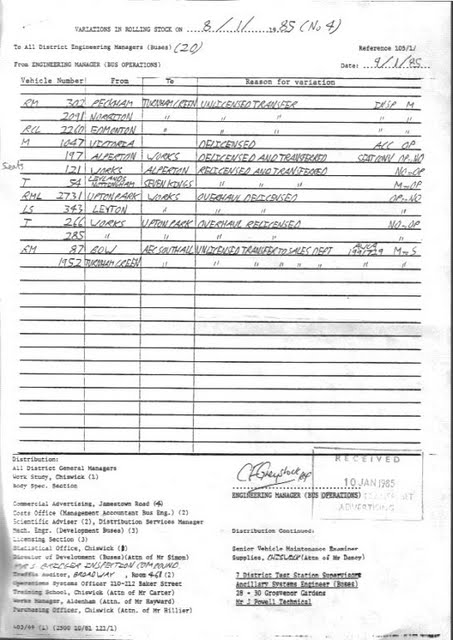 VARIATIONS IN ROLLING STOCK ON 8/1/1985 (No 4)
To All District Engineering Managers (Buses) (20) Reference 105/1/
From ENGINEERING MANAGER (BUS OPERATIONS) Date: 9/1/85
Vehicle Number From To Reason for variation
RM 302 PECKHAM TURNHAM GREEN UNLICENSED TRANSFER INSP M
2091 NORBITON " " "
RCL 2260 EDMONTON " " "
M 1047 VICTORIA DELICENSED ACC OP
197 ALPERTON WORKS DELICENSED AND TRANSFERRED OP-NO
121 WORKS ALPERTON RELICENSED AND TRANSFERRED NO-OP
T 84 LEYLANDS NOTTINGHAM SEVEN KINGS " " " M-OP
RML 2731 UPTON PARK WORKS OVERHAUL DELICENSED OP-NO
LS 343 LEYTON " " " "
T 266 WORKS UPTON PARK OVERHAUL RELICENSED NO-OP
285 " " " " "
RM 87 BOW AEC SOUTHALL UNLICENSED TRANSFER TO SALES DEPT M-S
1952 TURNHAM GREEN " " " " " " "
Distribution:
All District General Managers
Work Study, Chiswick (1)
Body Spec. Section
RECEIVED
10 JAN 1985
ADVERTISING
ENGINEERING MANAGER (BUS OPERATIONS)
Commercial Advertising, Jamestown Road (4)
Costs Office (Management Accountant Bus Eng.) (2)
Scientific Adviser (2), Distribution Services Manager
Mech. Engr. (Development Buses) (3)
Licensing Section (3)
Statistical Office, Chiswick
Director of Development (Buses)(Attn of Mr Simon)
INSPECTION COMPOUND
Traffic Auditor, BROADWAY, Room (2)
Operations Systems Officer 110-112 Baker Street
Training School, Chiswick (Attn of Mr Carter)
Works Manager, Aldenham (Attn. of Mr Hayward)
Purchasing Officer, Chiswick (Attn of Mr Hillier)
Distribution Continued:
Senior Vehicle Maintenance Examiner
Supplies, CHISWICK (Attn of Mr Dancy)
7 District Test Station Supervisors
Ancillary Systems Engineer (Buses)
28 - 30 Grosvenor Gardens
Mr J Powell Technical
403/69 (1) (2500 10/81 121/1)